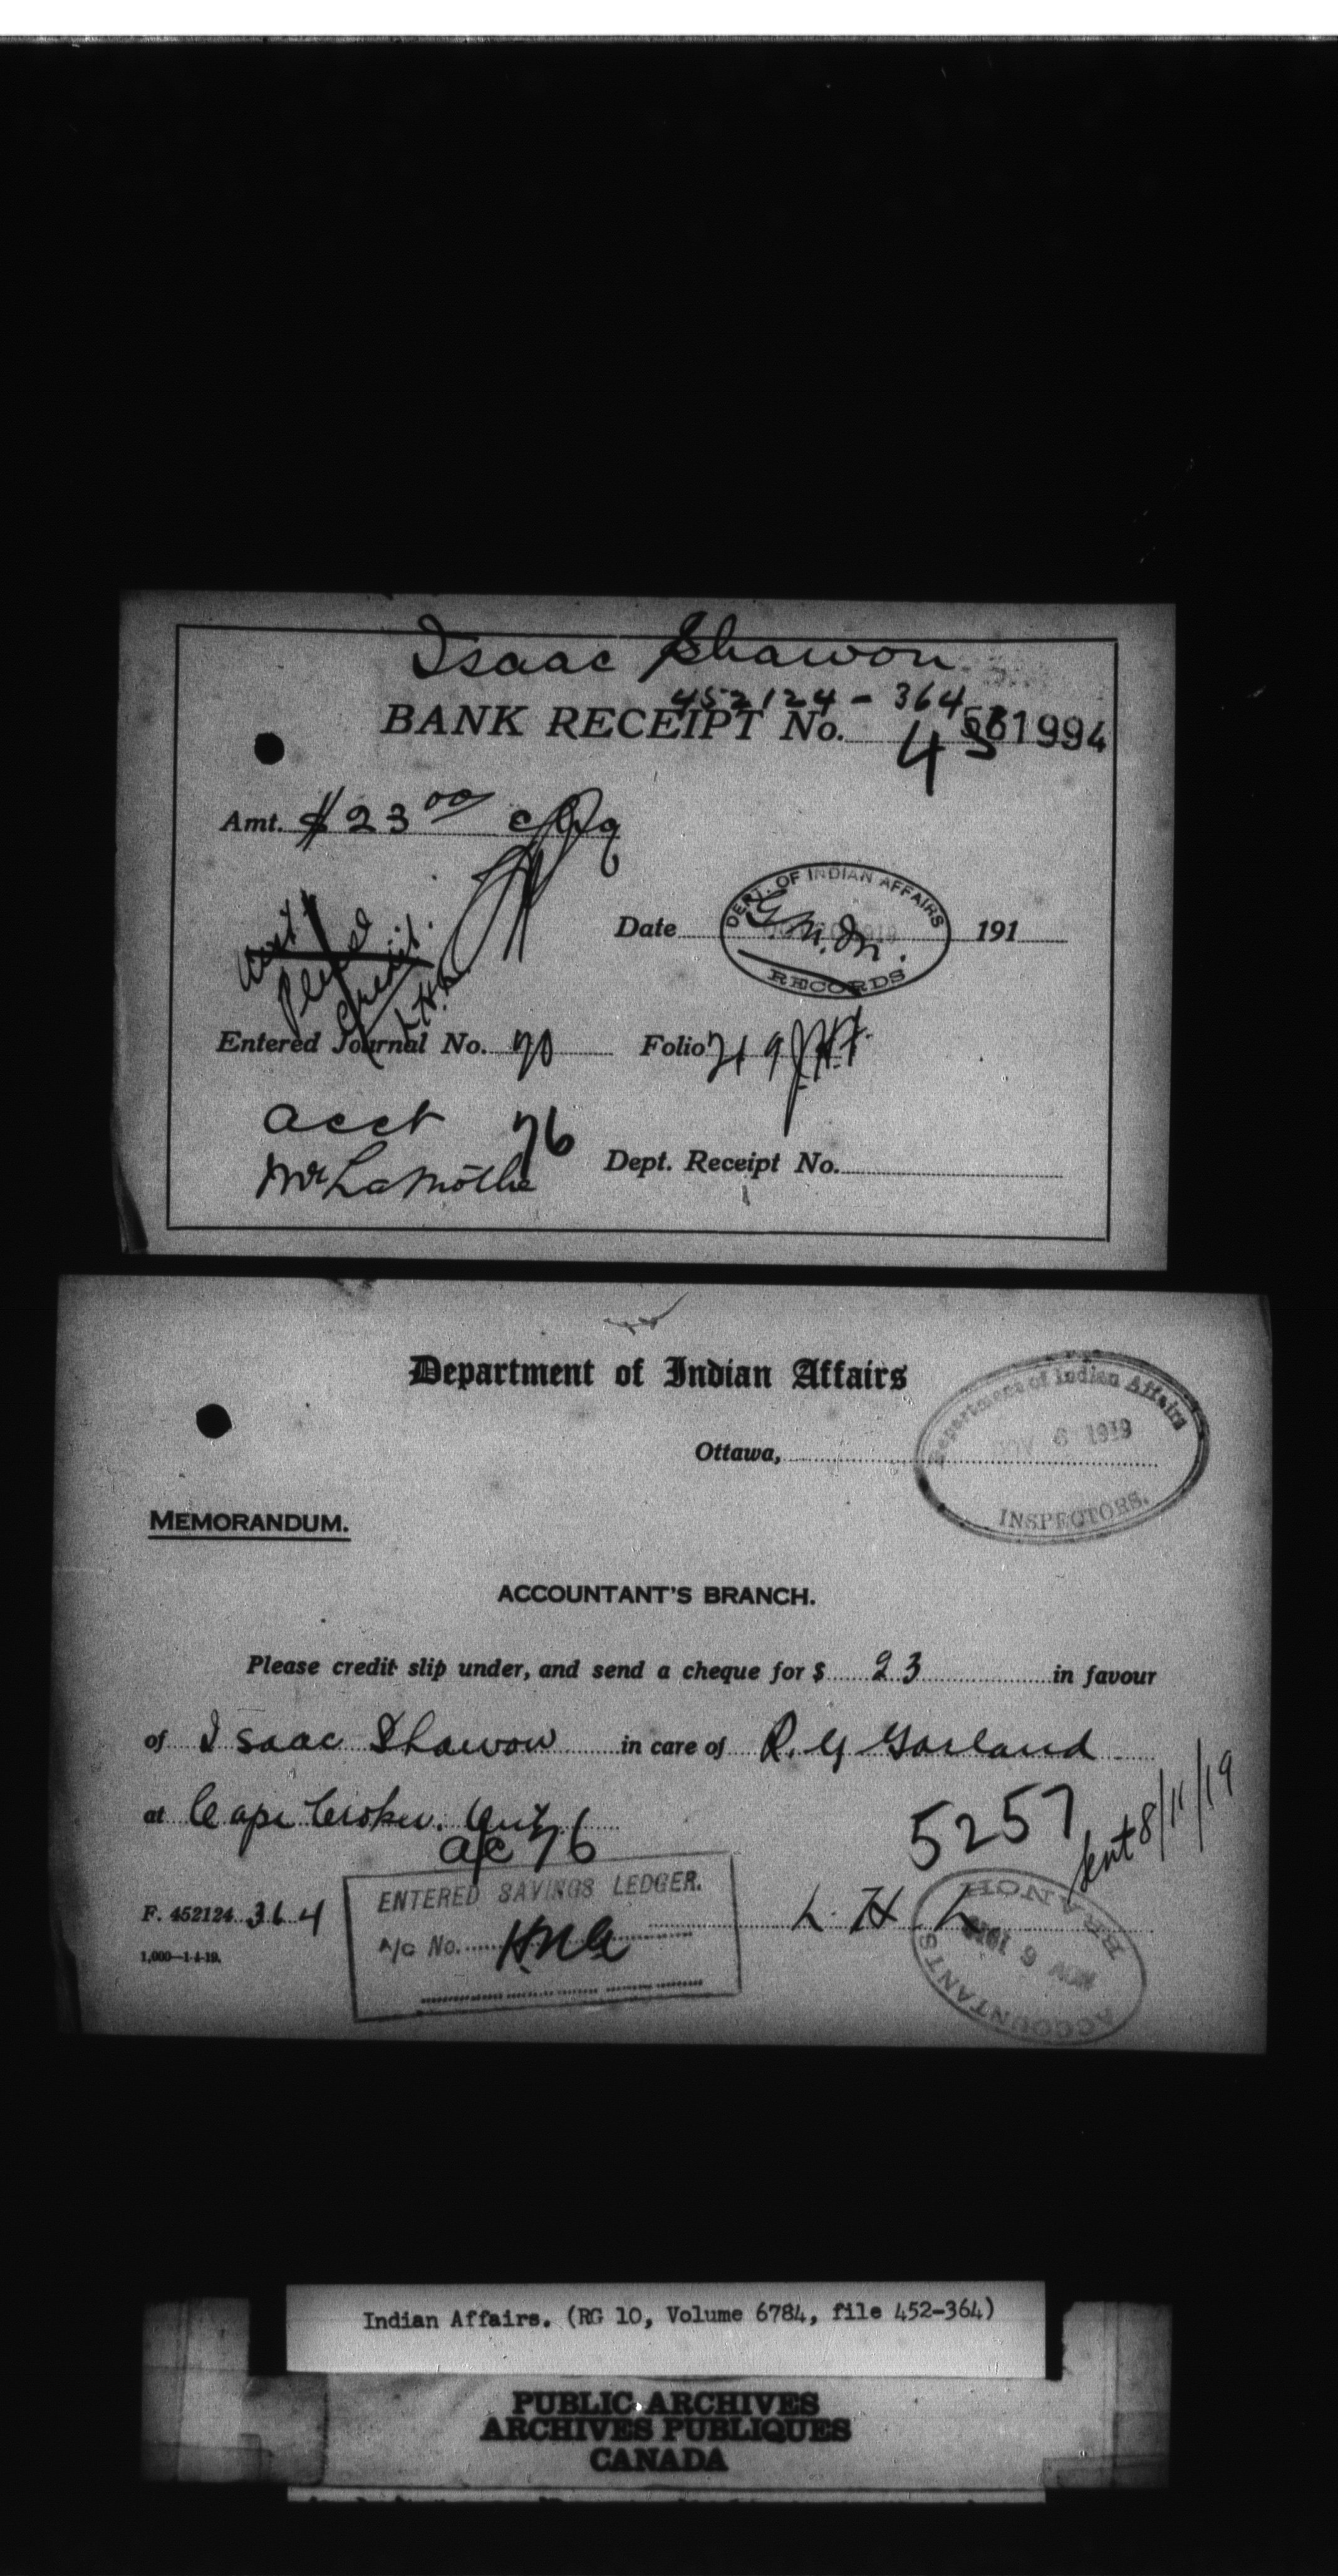 Isaac Shawon
452124 - 364
BANK RECEIPT No. 45 561994
Amt. $ 23 00 chq
DEPT. OF INDIAN AFFAIRS
Date G.M.M. 1919 191
RECORDS
Acct
Please
Credit.
L.H.L.
Entered Journal No. 70 Folio 719
acct 76
Mr LaMothe
Dept. Receipt No.
Department of Indian Affairs
Department of Indian Affairs
Ottawa, NOV 6 1919
INSPECTORS.
MEMORANDUM.
ACCOUNTANT'S BRANCH.
Please credit slip under, and send a cheque for $ 23 in favour
of Isaac Shawon in care of R. G Garland
at Cape Croker. Ont
a/c 76
5257
sent 8/11/19
F. 452124 364
1,000—1-4-19.
ENTERED SAVINGS LEDGER.
A/C No.
L. H. L
ACCOUNTANTS BRANCH
NOV 6 1919
Indian Affairs. (RG 10, Volume 6784, file 452-364)
PUBLIC ARCHIVES
ARCHIVES PUBLIQUES
CANADA